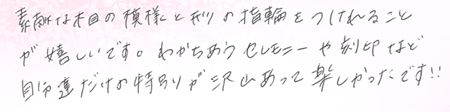 素敵な木目の模様と形の指輪をつけれること
が嬉しいです。わかちあうセレモニーや刻印など
自分達だけの特別が沢山あって楽しかったです!!